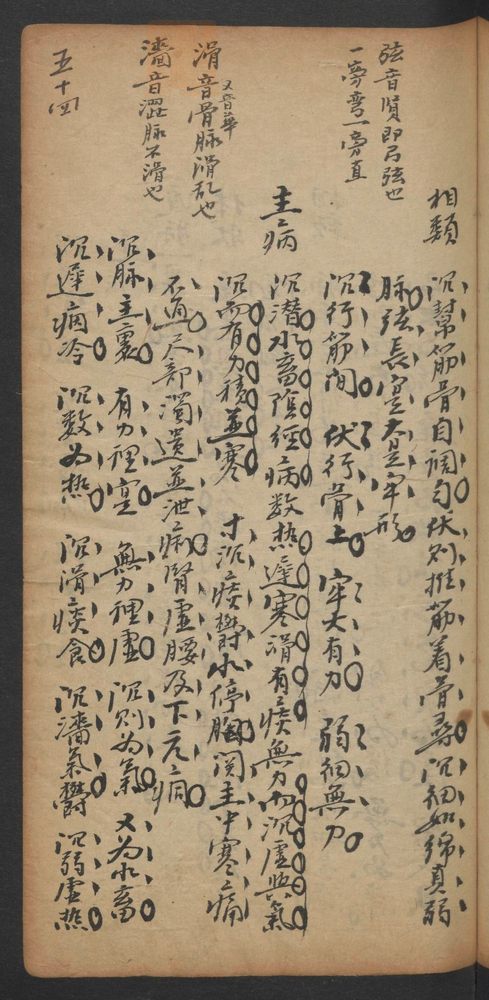 相類
沉幇筋骨自調匀伏則推筋着骨尋沉細如綿真弱
脉弦長寔大是牢形
沉行筋間 伏行骨上 牢大有力 弱細無力
主病
沉潜水畜陰經病数热遲寒滑有痰無力而沉虛與氣
沉而有力積並寒 寸沉痰欝水停胸関主中寒痛
不通尺部濁遺並泄痢腎虛腰及下元痌
沉脉主裏 有力裡寔 無力裡虛 沉則为氣 又为水畜
沉遲痼冷 沉数为热 沉滑痰食 沉濇氣欝 沉弱虛热
弦音賢即弓弦也
一旁弯一旁直
滑音骨脉滑乱也
又音華
濇音澀脉不滑也
五十四